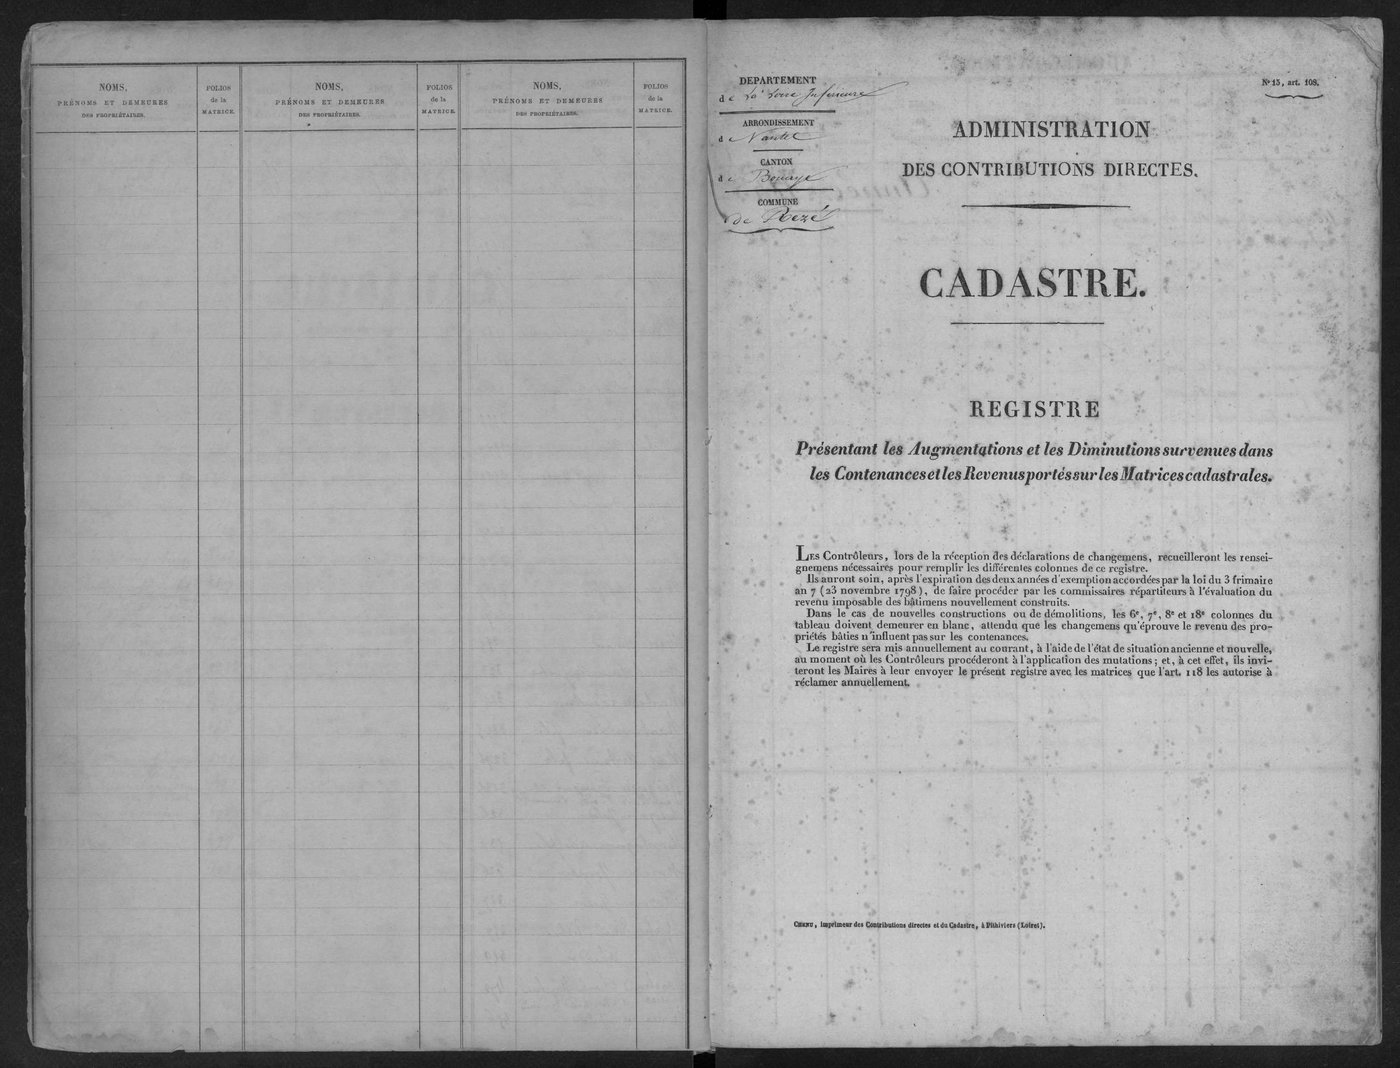 NOMS,
PRÉNOMS ET DEMEURES
DES PROPRIÉTAIRES.
FOLIOS
de la
MATRICE.
NOMS,
PRÉNOMS ET DEMEURES
DES PROPRIÉTAIRES.
FOLIOS
de la
MATRICE.
NOMS,
PRÉNOMS ET DEMEURES
DES PROPRIÉTAIRES.
FOLIOS
de la
MATRICE.
DEPARTEMENT
de La Loire Inférieure
ARRONDISSEMENT
de Nantes
CANTON
de Bouaye
COMMUNE
de Rezé
No 15, art. 108.
ADMINISTRATION
DES CONTRIBUTIONS DIRECTES.
CADASTRE.
REGISTRE
Présentant les Augmentations et les Diminutions survenues dans
les Contenances et les Revenus portés sur les Matrices cadastrales.
LES Contrôleurs, lors de la réception des déclarations de changemens, recueilleront les rensei-
gnemens nécessaires pour remplir les différentes colonnes de ce registre.
Ils auront soin, après l'expiration des deux années d'exemption accordées par la loi du 3 frimaire
an 7 (23 novembre 1798), de faire procéder par les commissaires répartiteurs à l'évaluation du
revenu imposable des bâtimens nouvellement construits.
Dans le cas de nouvelles constructions ou de démolitions, les 6e, 7e, 8e et 18e colonnes du
tableau doivent demeurer en blanc, attendu que les changemens qu'éprouve le revenu des pro-
priétés bâties n'influent pas sur les contenances.
Le registre sera mis annuellement au courant, à l'aide de l'état de situation ancienne et nouvelle,
au moment où les Contrôleurs procéderont à l'application des mutations; et, à cet effet, ils invi-
teront les Maires à leur envoyer le présent registre avec les matrices que l'art. 118 les autorise à
réclamer annuellement.
CHENU, imprimeur des Contributions directes et du Cadastre, à Pithiviers (Loiret).